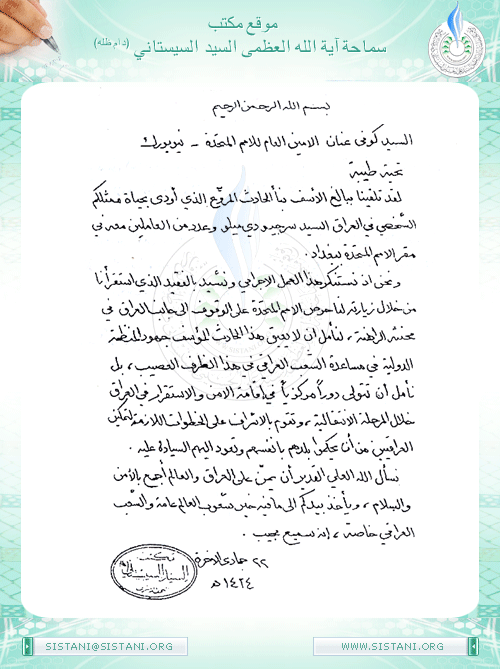 موقع مكتب
سماحة آية الله العظمى السيد السيستاني (دام ظله)
SISTANI.ORG
بسم الله الرحمن الرحيم
السيد كوفي عنان الامين العام للامم المتحدة - نيويورك
تحية طيبة
لقد تلقينا ببالغ الأسف نبأ الحادث المروّع الذي أودى بحياة ممثلكم
الشخصي في العراق السيد سرجيو دي ميلو وعدد من العاملين معه في
مقر الامم المتحدة ببغداد .
ونحن اذ نستنكر هذا العمل الاجرامي ونشيد بالفقيد الذي استقرأنا
من خلال زيارته لنا حرص الامم المتحدة على الوقوف الى جانب العراق في
محنته الراهنة ، لنأمل ان لا يعيق هذا الحادث المؤسف جهود المنظمة
الدولية في مساعدة الشعب العراقي في هذا الظرف العصيب ، بل
نأمل أن تتولى دوراً مركزياً في إقامة الامن والاستقرار في العراق
خلال المرحلة الانتقالية ، وتقوم بالاشراف على الخطوات اللازمة لتمكين
العراقيين من أن يحكموا بلدهم بانفسهم وتعود اليهم السيادة عليه .
نسأل الله العلي القدير أن يمنّ على العراق والعالم أجمع بالأمن
والسلام ، ويأخذ بيدكم الى ما فيه خير شعوب العالم عامة والشعب
العراقي خاصة ، إنه سميع مجيب .
٢٢ جمادى الآخرة
١٤٢٤ هـ
مكتب
السيد السيستاني
النجف الاشرف
SISTANI@SISTANI.ORG
WWW.SISTANI.ORG